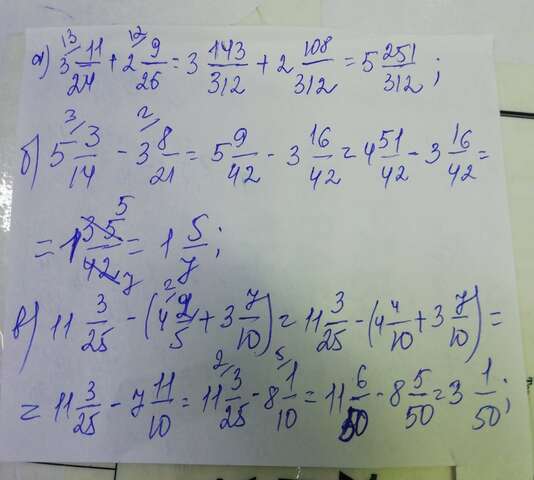 а) 3 11/24 (13/) + 2 9/26 (12/) = 3 143/312 + 2 108/312 = 5 251/312;
б) 5 3/14 (3/) - 3 8/21 (2/) = 5 9/42 - 3 16/42 = 4 51/42 - 3 16/42 =
= 1 35/42 (5/7) = 1 5/7;
в) 11 3/25 - (4 2/5 (2/) + 3 7/10) = 11 3/25 - (4 4/10 + 3 7/10) =
= 11 3/25 - 7 11/10 = 11 3/25 (2/) - 8 1/10 (5/) = 11 6/50 - 8 5/50 = 3 1/50;